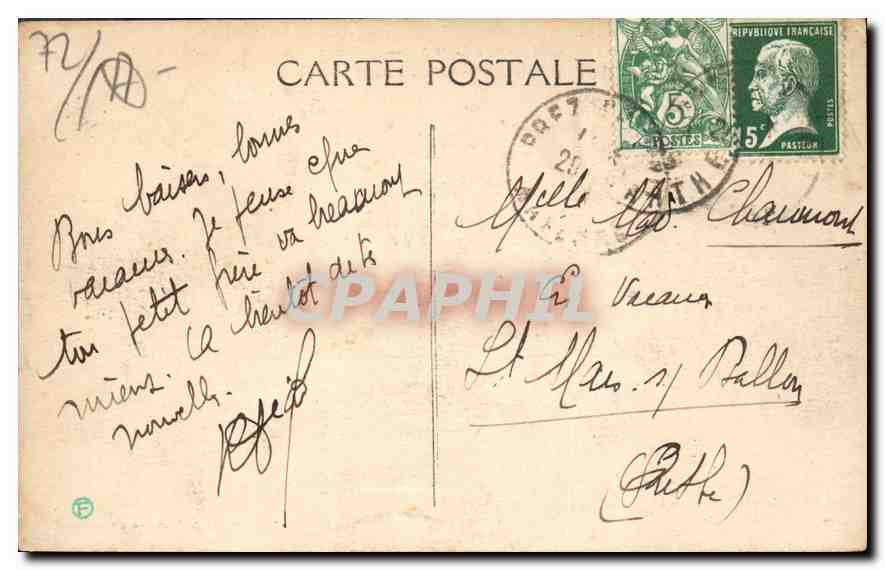 72/
CARTE POSTALE
REPVBLIQUE FRANÇAISE
POSTES
15c
PASTEUR
5c
POSTES
Bons baisers, bonnes
vacances. Je pense que
ton petit frère va beaucoup
mieux. A bientôt de tes
nouvelles.
Melle Mad. Chaumont
En Vacances
St Mars s/ Ballon
(Sarthe)
CPAPHIL
F